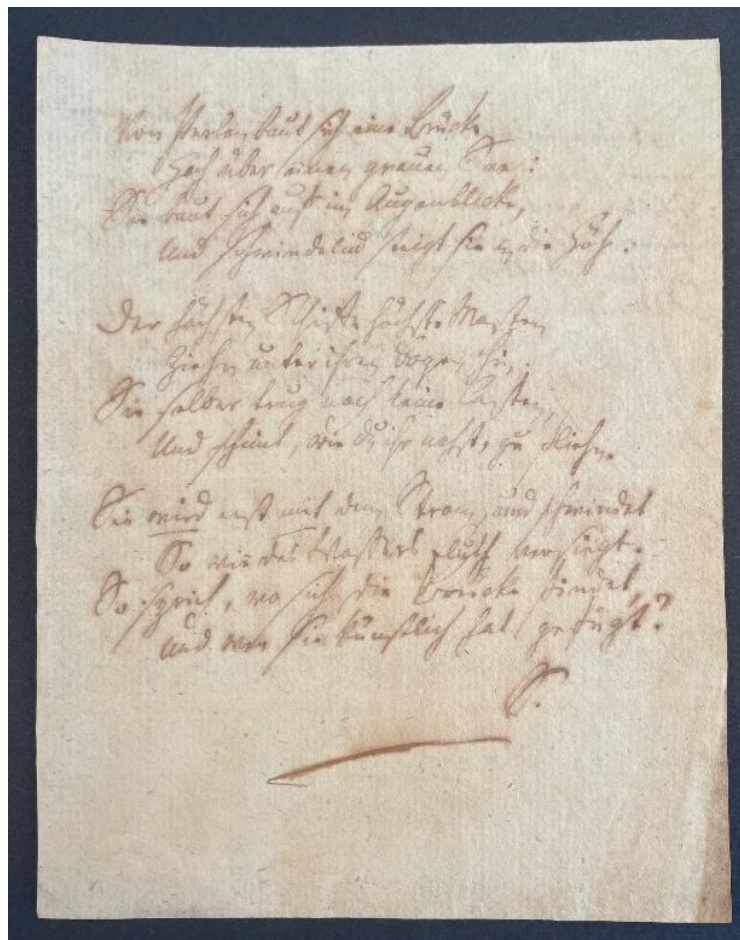 Von Perlen baut sich eine Brücke
Hoch über einen grauen See:
Sie baut sich auf im Augenblicke,
Und schwindelnd steigt sie in die Höh.
Der höchsten Schiffe höchste Masten
Ziehn unter ihrem Bogen hin.
Sie selber trug noch keine Lasten,
Und scheint, wie du ihr nahst, zu fliehn.
Sie wird erst mit dem Strom, und schwindet
So wie des Wassers Fluth versiegt.
So sprich, wo sich die Brücke findet,
Und wer sie künstlich hat gefügt?
S.